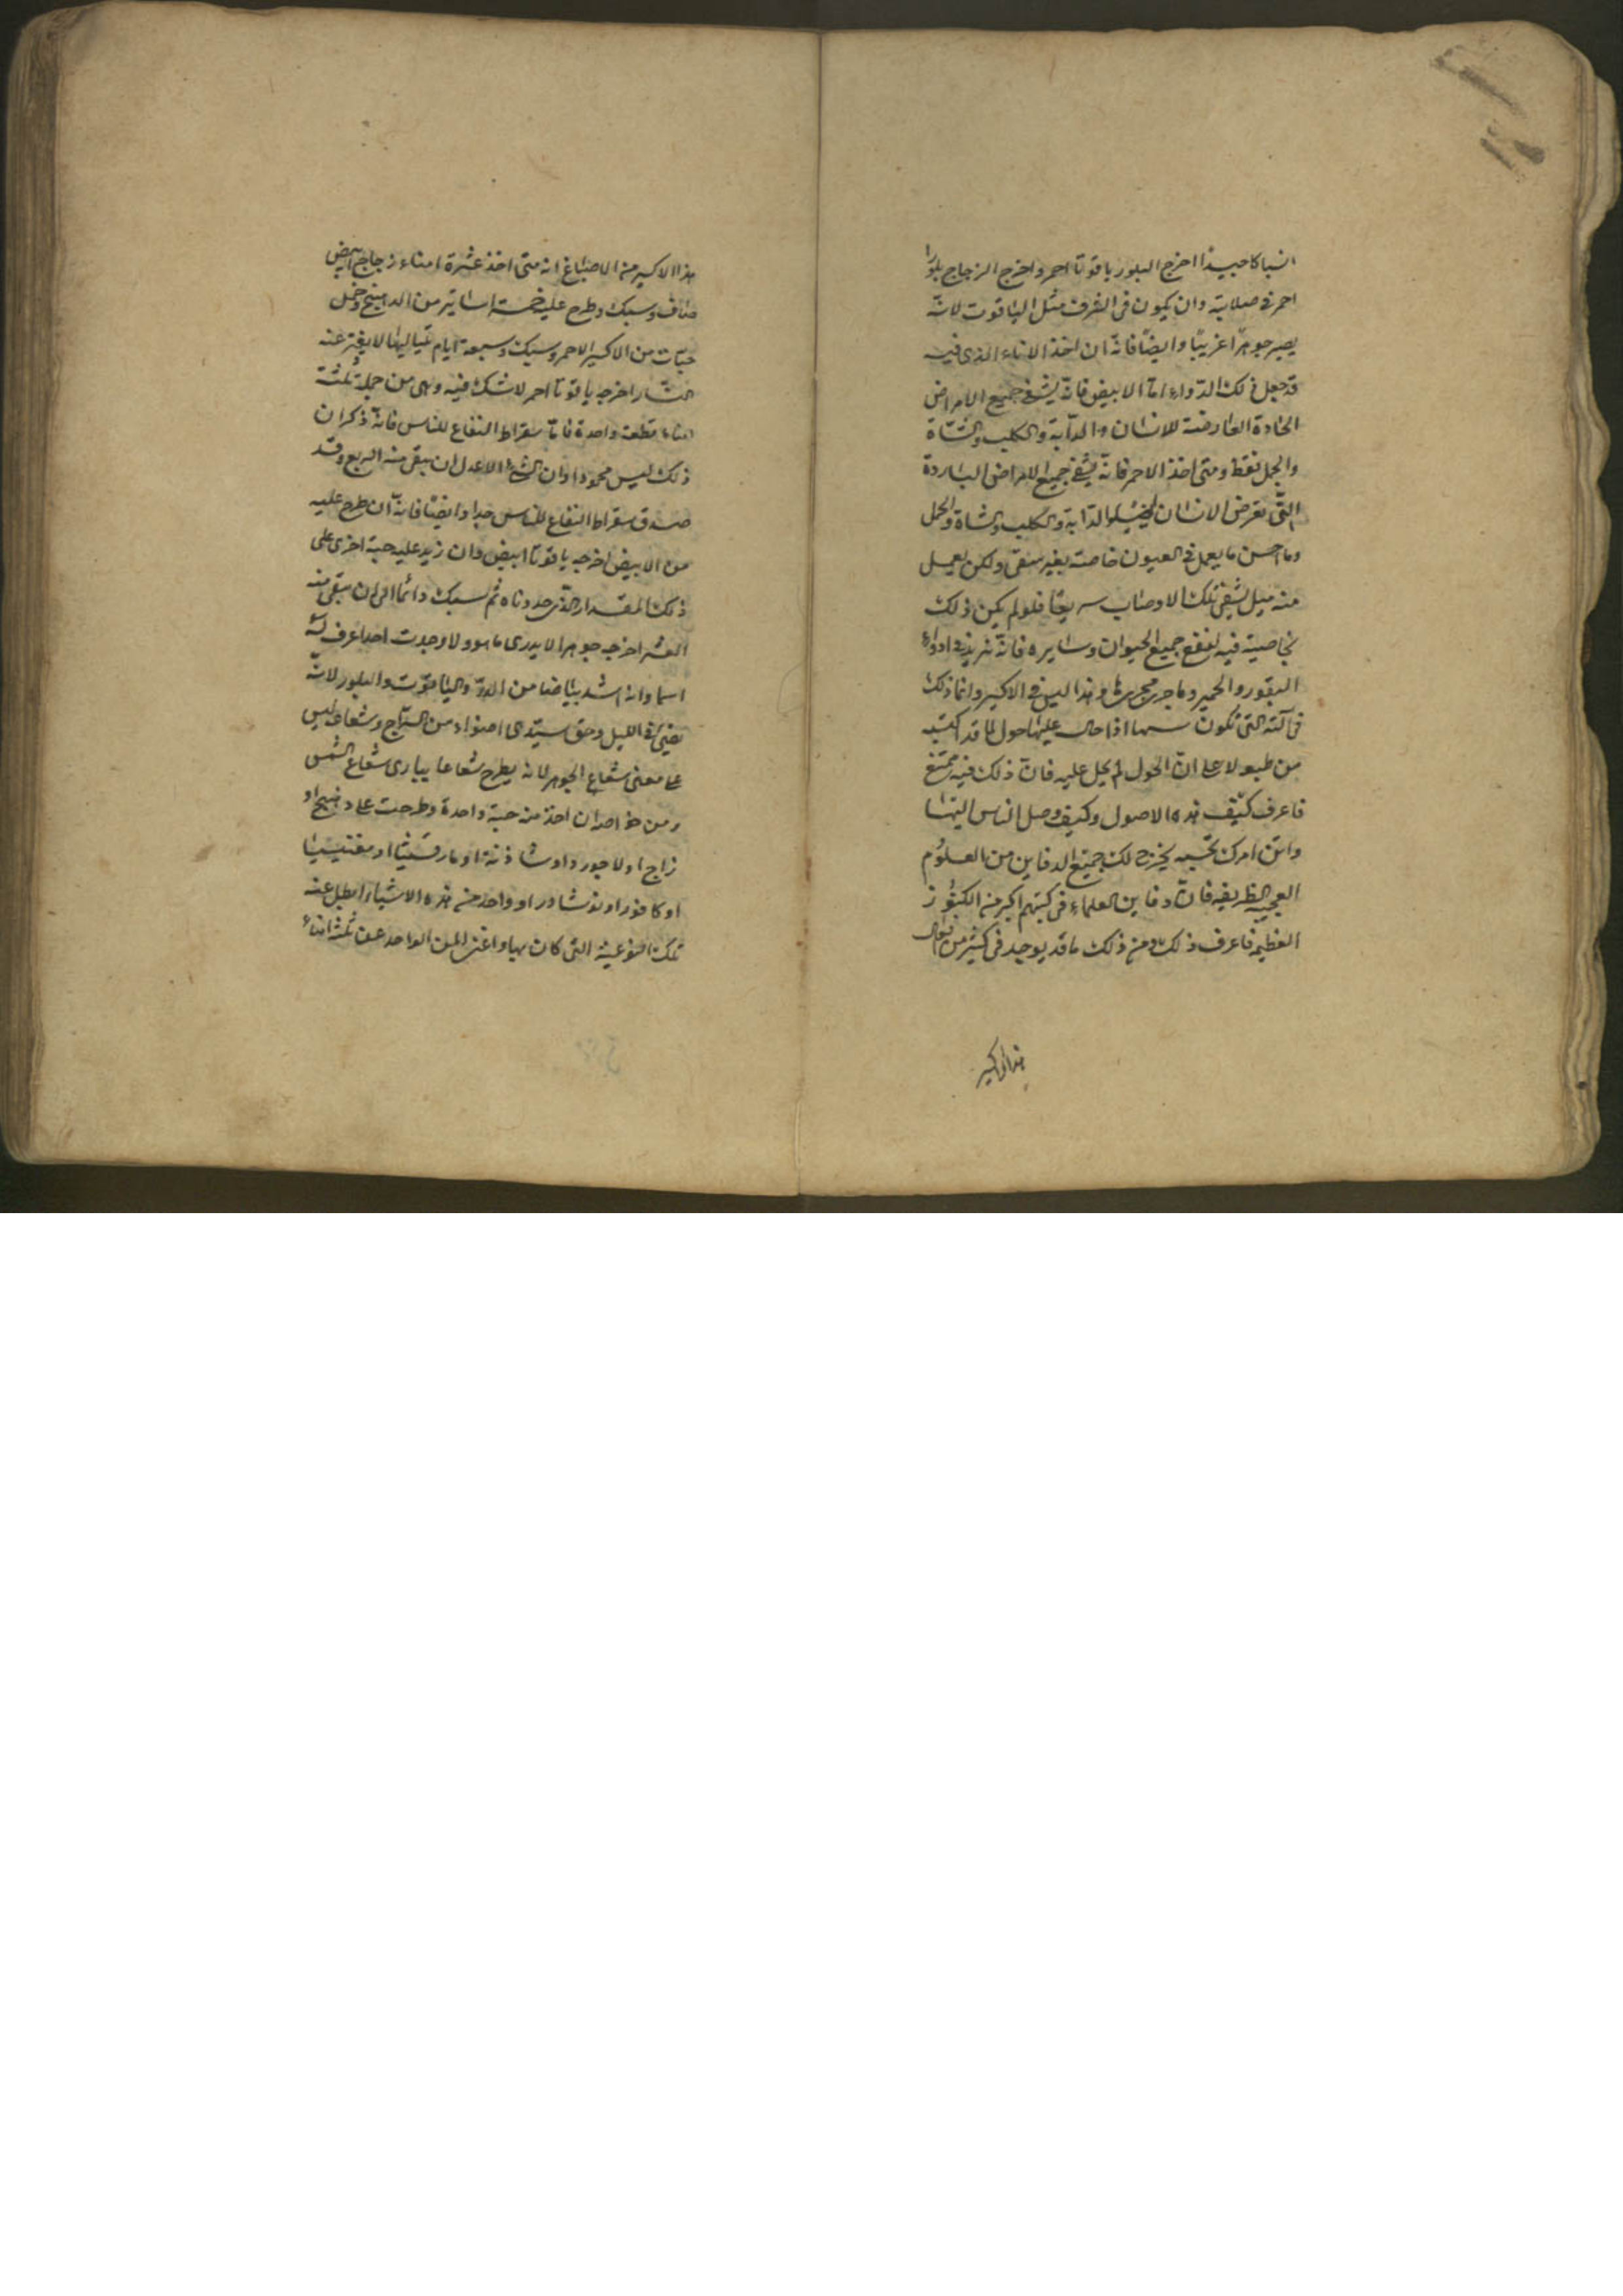 اخرج البلور ياقوتا احمر واخرج الزجاج بلورا
احمر في صلابته وان يكون في الشرف مثل الياقوت لانه
يصير جوهرا غريبا وايضا فانه ان اخذ الاناء الذي فيه
قد جعل ذلك الدواء اما الابيض فانه يشفي جميع الامراض
الحادة العارضة للانسان والدابة والكلب والشاة
والجمل فقط ومتى اخذ الاحمر فانه يشفي جميع الامراض الباردة
التي تعرض الانسان والدابة والكلب والشاة والجمل
وما احسن ما يعمل في العيون خاصة بغير سقى ولكن يعمل
منه ميل لشفى تلك الاوصاب سريعا فلو لم يكن ذلك
بخاصية فيه لنفع جميع الحيوان وسايره فانه
البقور والحمير وما جرى مجرى هذا ليس في الاكسير وانما ذلك
في آلته التي تكون اذا حال عليها حول
من طبع ولا على ان الحول لم يحل عليه فان ذلك فيه ممتنع
فاعرف كيف هذه الاصول وكيف وصل الناس اليها
واتقن امرك يخرج لك جميع الدفاين من العلوم
العجيبة الظريفة فان دفاين العلماء في كتبهم اكبر من الكنوز
العظيمة فاعرف ذلك ومن ذلك ما قد يوجد في كثير من
هذا الاكسير
هذا الاكسير من الاصباغ انه متى اخذ عشرة امناء زجاج ابيض
صاف وسبك وطرح عليه خمسة اساتير من
حبات من الاكسير الاحمر وسبك وسبعة ايام بلياليها لا يفتر عنه
النار اخرجه ياقوتا احمر لا شك فيه وبقى من جملة ثلثة
امناء قطعة واحدة فاما سقراط النفاع للناس فانه ذكر ان
ذلك ليس محمودا وان الاعدل ان يبقى منه الربع وقد
صدق سقراط النفاع للناس جدا وايضا فانه ان طرح عليه
من الابيض اخرجه ياقوتا ابيض وان زيد عليه حبة اخرى على
ذلك المقدار الذي حددناه ثم سبك دائما الى ان يبقى منه
العشر اخرجه جوهرا لا يدرى ما هو ولا وجدت احدا عرف له
اسما وانه اشد بياضا من الدر والياقوت والبلور لانه
يضيئ في الليل وحق سيدى اضواء من السراج وشعاعه ليس
على معنى شعاع الجوهر لانه يطرح شعاعا يبارى شعاع الشمس
ومن خواصه ان اخذ منه حبة واحدة وطرحت على دهنج او
زاج او لاجورد او شاذنة او مارقشيثا او مغنيسيا
او كافور او نوشادر او واحد من هذه الاشياء ابطل عنه
تلك النوعية التي كان بها واغنى المن الواحد عن ثلثة امناء